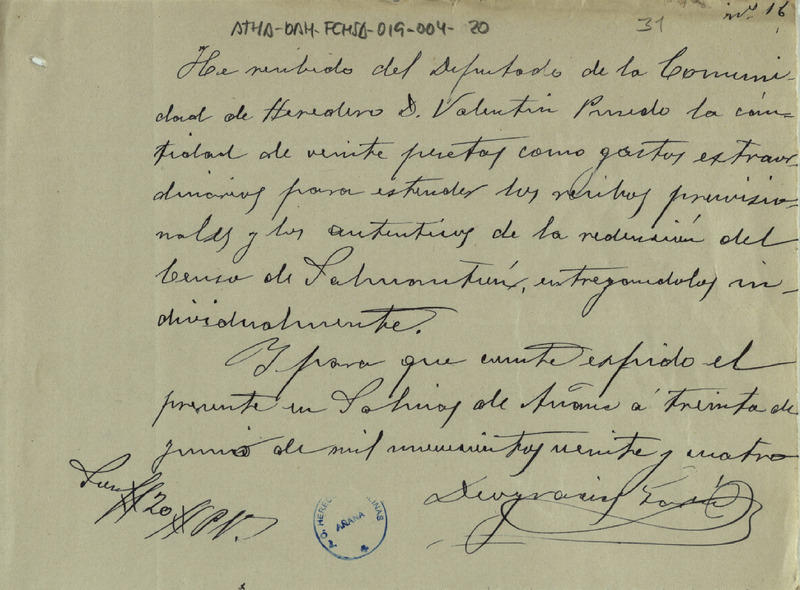 nº 16
ATHA-DAH-FCHSA-019-004-20
31
He recibido del Diputado de la Comuni-
dad de Heredero D. Valentin Pinedo la can-
tidad de veinte pesetas como gastos extraor-
dinarios para estender los recibos provisio-
nales y los autenticos de la redención del
Censo de Salmantón, entregandolos in-
dividualmente.
Y para que conste espido el
presente en Salinas de Añana á treinta de
junio de mil novecientos veinte y cuatro
Deogracias
Son # 20 # P
HERE INAS
AÑANA